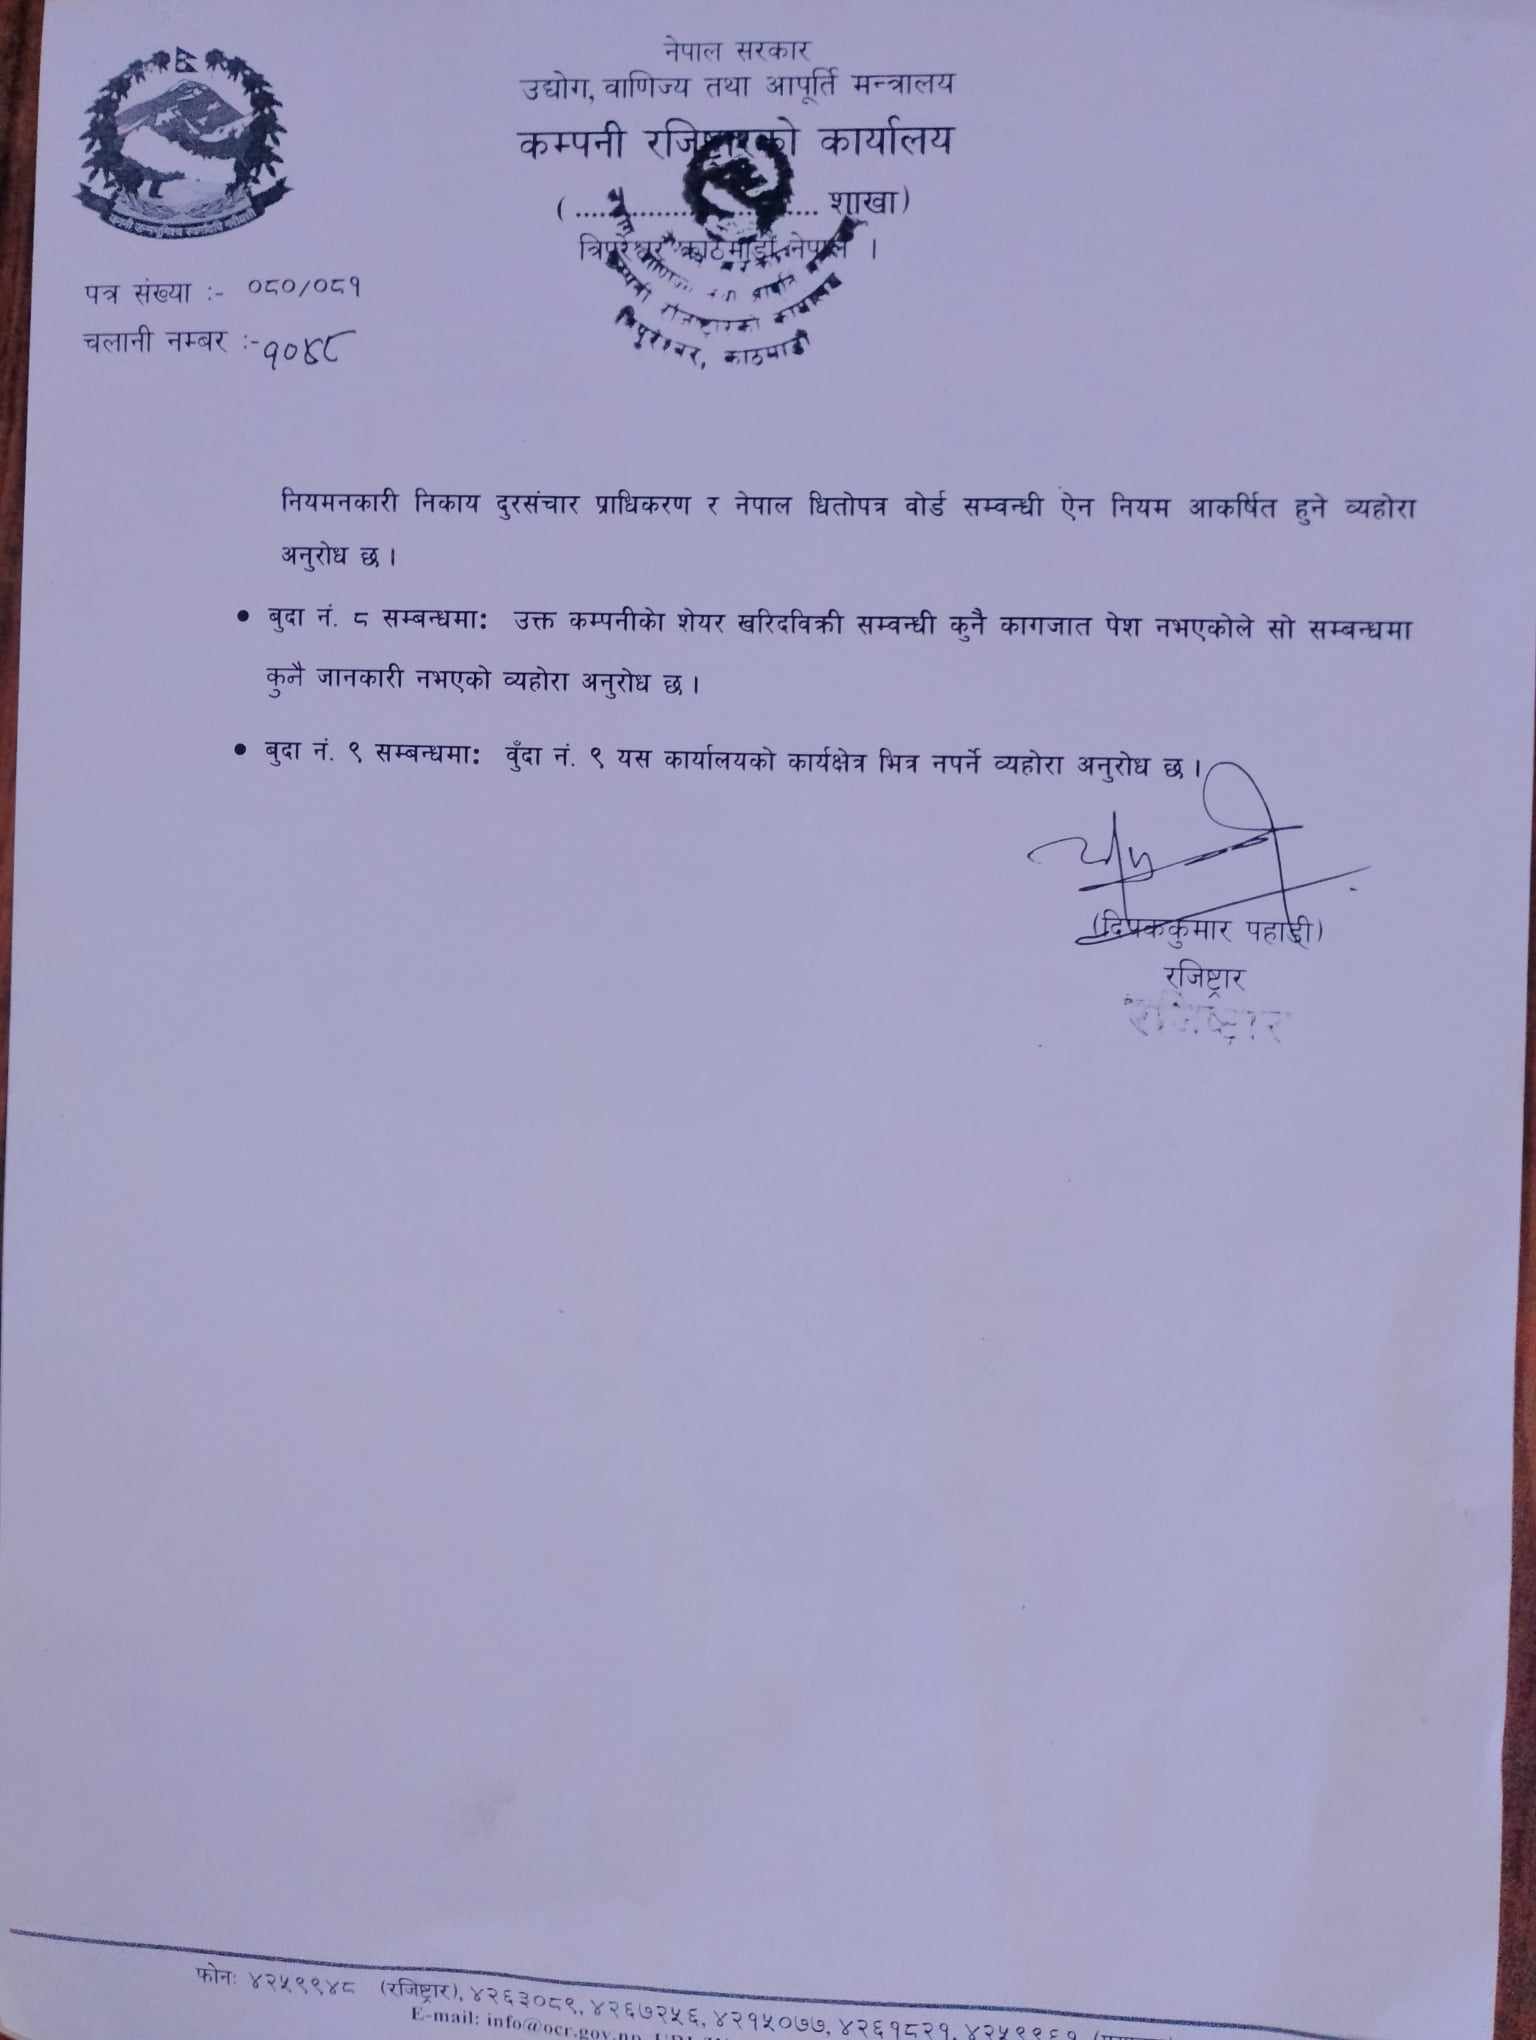 नेपाल सरकार
उद्योग, वाणिज्य तथा आपूर्ति मन्त्रालय
कम्पनी रजिष्ट्रारको कार्यालय
( ........................ शाखा)
त्रिपुरेश्वर काठमाडौं नेपाल ।
त्रिपुरेश्वर, काठमाडौं
पत्र संख्या :- ०८०/०८१
चलानी नम्बर :-
नियमनकारी निकाय दुरसंचार प्राधिकरण र नेपाल धितोपत्र वोर्ड सम्वन्धी ऐन नियम आकर्षित हुने व्यहोरा
अनुरोध छ ।
• बुदा नं. ८ सम्बन्धमाः उक्त कम्पनीको शेयर खरिदविक्री सम्वन्धी कुनै कागजात पेश नभएकोले सो सम्बन्धमा
कुनै जानकारी नभएको व्यहोरा अनुरोध छ ।
• बुदा नं. ९ सम्बन्धमाः वुँदा नं. ९ यस कार्यालयको कार्यक्षेत्र भित्र नपर्ने व्यहोरा अनुरोध छ ।
(दिपककुमार पहाडी)
रजिष्ट्रार
रजिष्ट्रार
फोनः ४२५९९४८ (रजिष्ट्रार), ४२६३०८९, ४२६७२५६, ४२१५०७७, ४२६१८२१, ४२५९९६१
E-mail: info@ocr.gov.np,